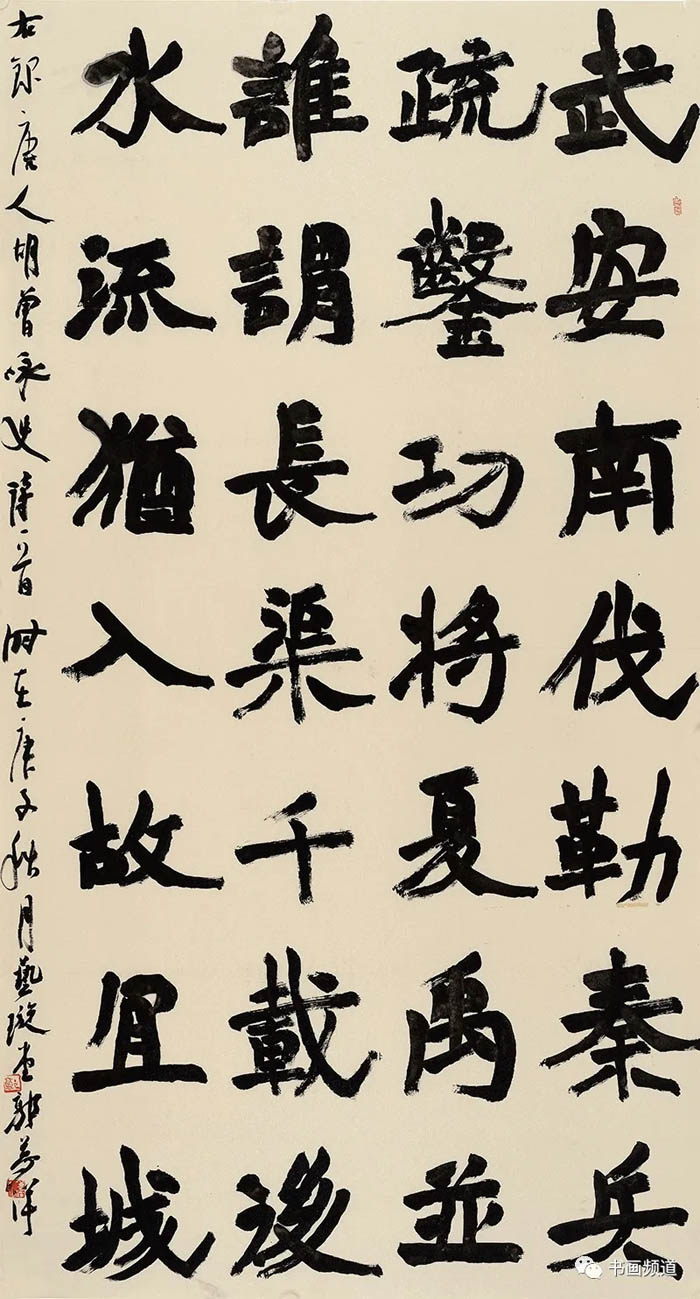 武安南伐勒秦兵
疏鑿功将夏禹並
誰謂長渠千載後
水流猶入故宜城
右録唐人胡曾咏史詩一首时在庚子秋月藝璇堂郭
书画频道